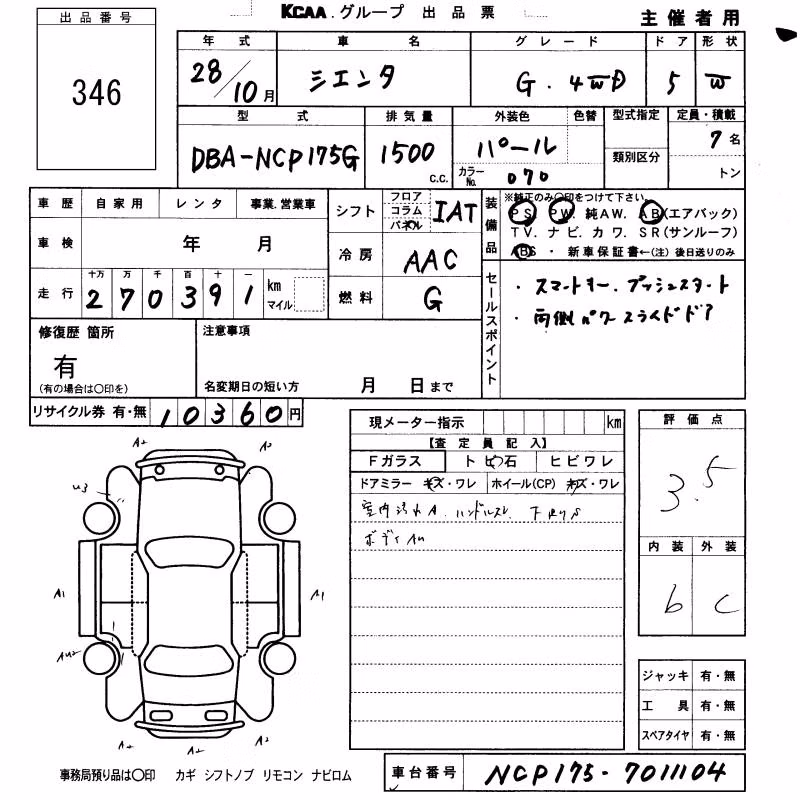 KCAA.グループ 出品票 主催者用
出品番号
346
年式 車名 グレード ドア 形状
28/10月 シエンタ G.4WD 5 W
型式 排気量 外装色 色替 型式指定 定員・積載
DBA-NCP175G 1500 c.c. パール 類別区分 7名
カラーNo. 070 トン
車歴 自家用 レンタ 事業.営業車
シフト フロア コラム パネル IAT
車検 年 月
冷房 AAC
走行 十万 万 千 百 十 一
270391 km マイル
燃料 G
装備品 ※純正のみ○印をつけて下さい
PS PW. 純AW. AB(エアバック)
TV. ナビ. カワ. SR(サンルーフ)
ABS・新車保証書←(注) 後日送りのみ
セールスポイント
・スマートキー.プッシュスタート
・両側パワースライドドア
修復歴 箇所
有
(有の場合は○印を)
注意事項
名変期日の短い方 月 日まで
リサイクル券 有・無 10360円
現メーター指示 km
【査定員記入】
Fガラス ト ビ 石 ヒビワレ
ドアミラー キズ・ワレ ホイール(CP) キズ・ワレ
室内汚れA. ハンドルスレ. 下回りS
ボディAU
評価点
3.5
内装 外装
b C
A2 A2
U3
A1 A1
AU2
A2 A2 A2
ジャッキ 有・無
工具 有・無
スペアタイヤ 有・無
事務局預り品は○印 カギ シフトノブ リモコン ナビロム
車台番号 NCP175-7011104